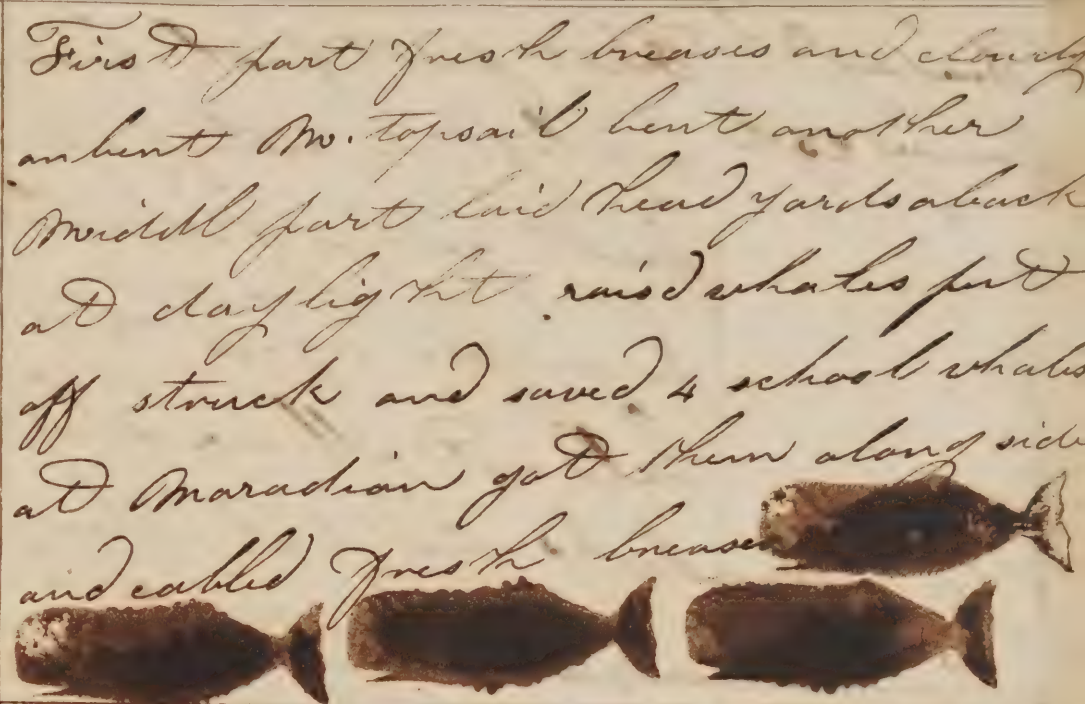 First part fresh breases and cloudy
unbent M. Topsail bent another
Middl part laid head yards aback
at daylight raisd whales put
off struck and saved 4 school whales
at Maradian got them along side
and cabled fresh breases